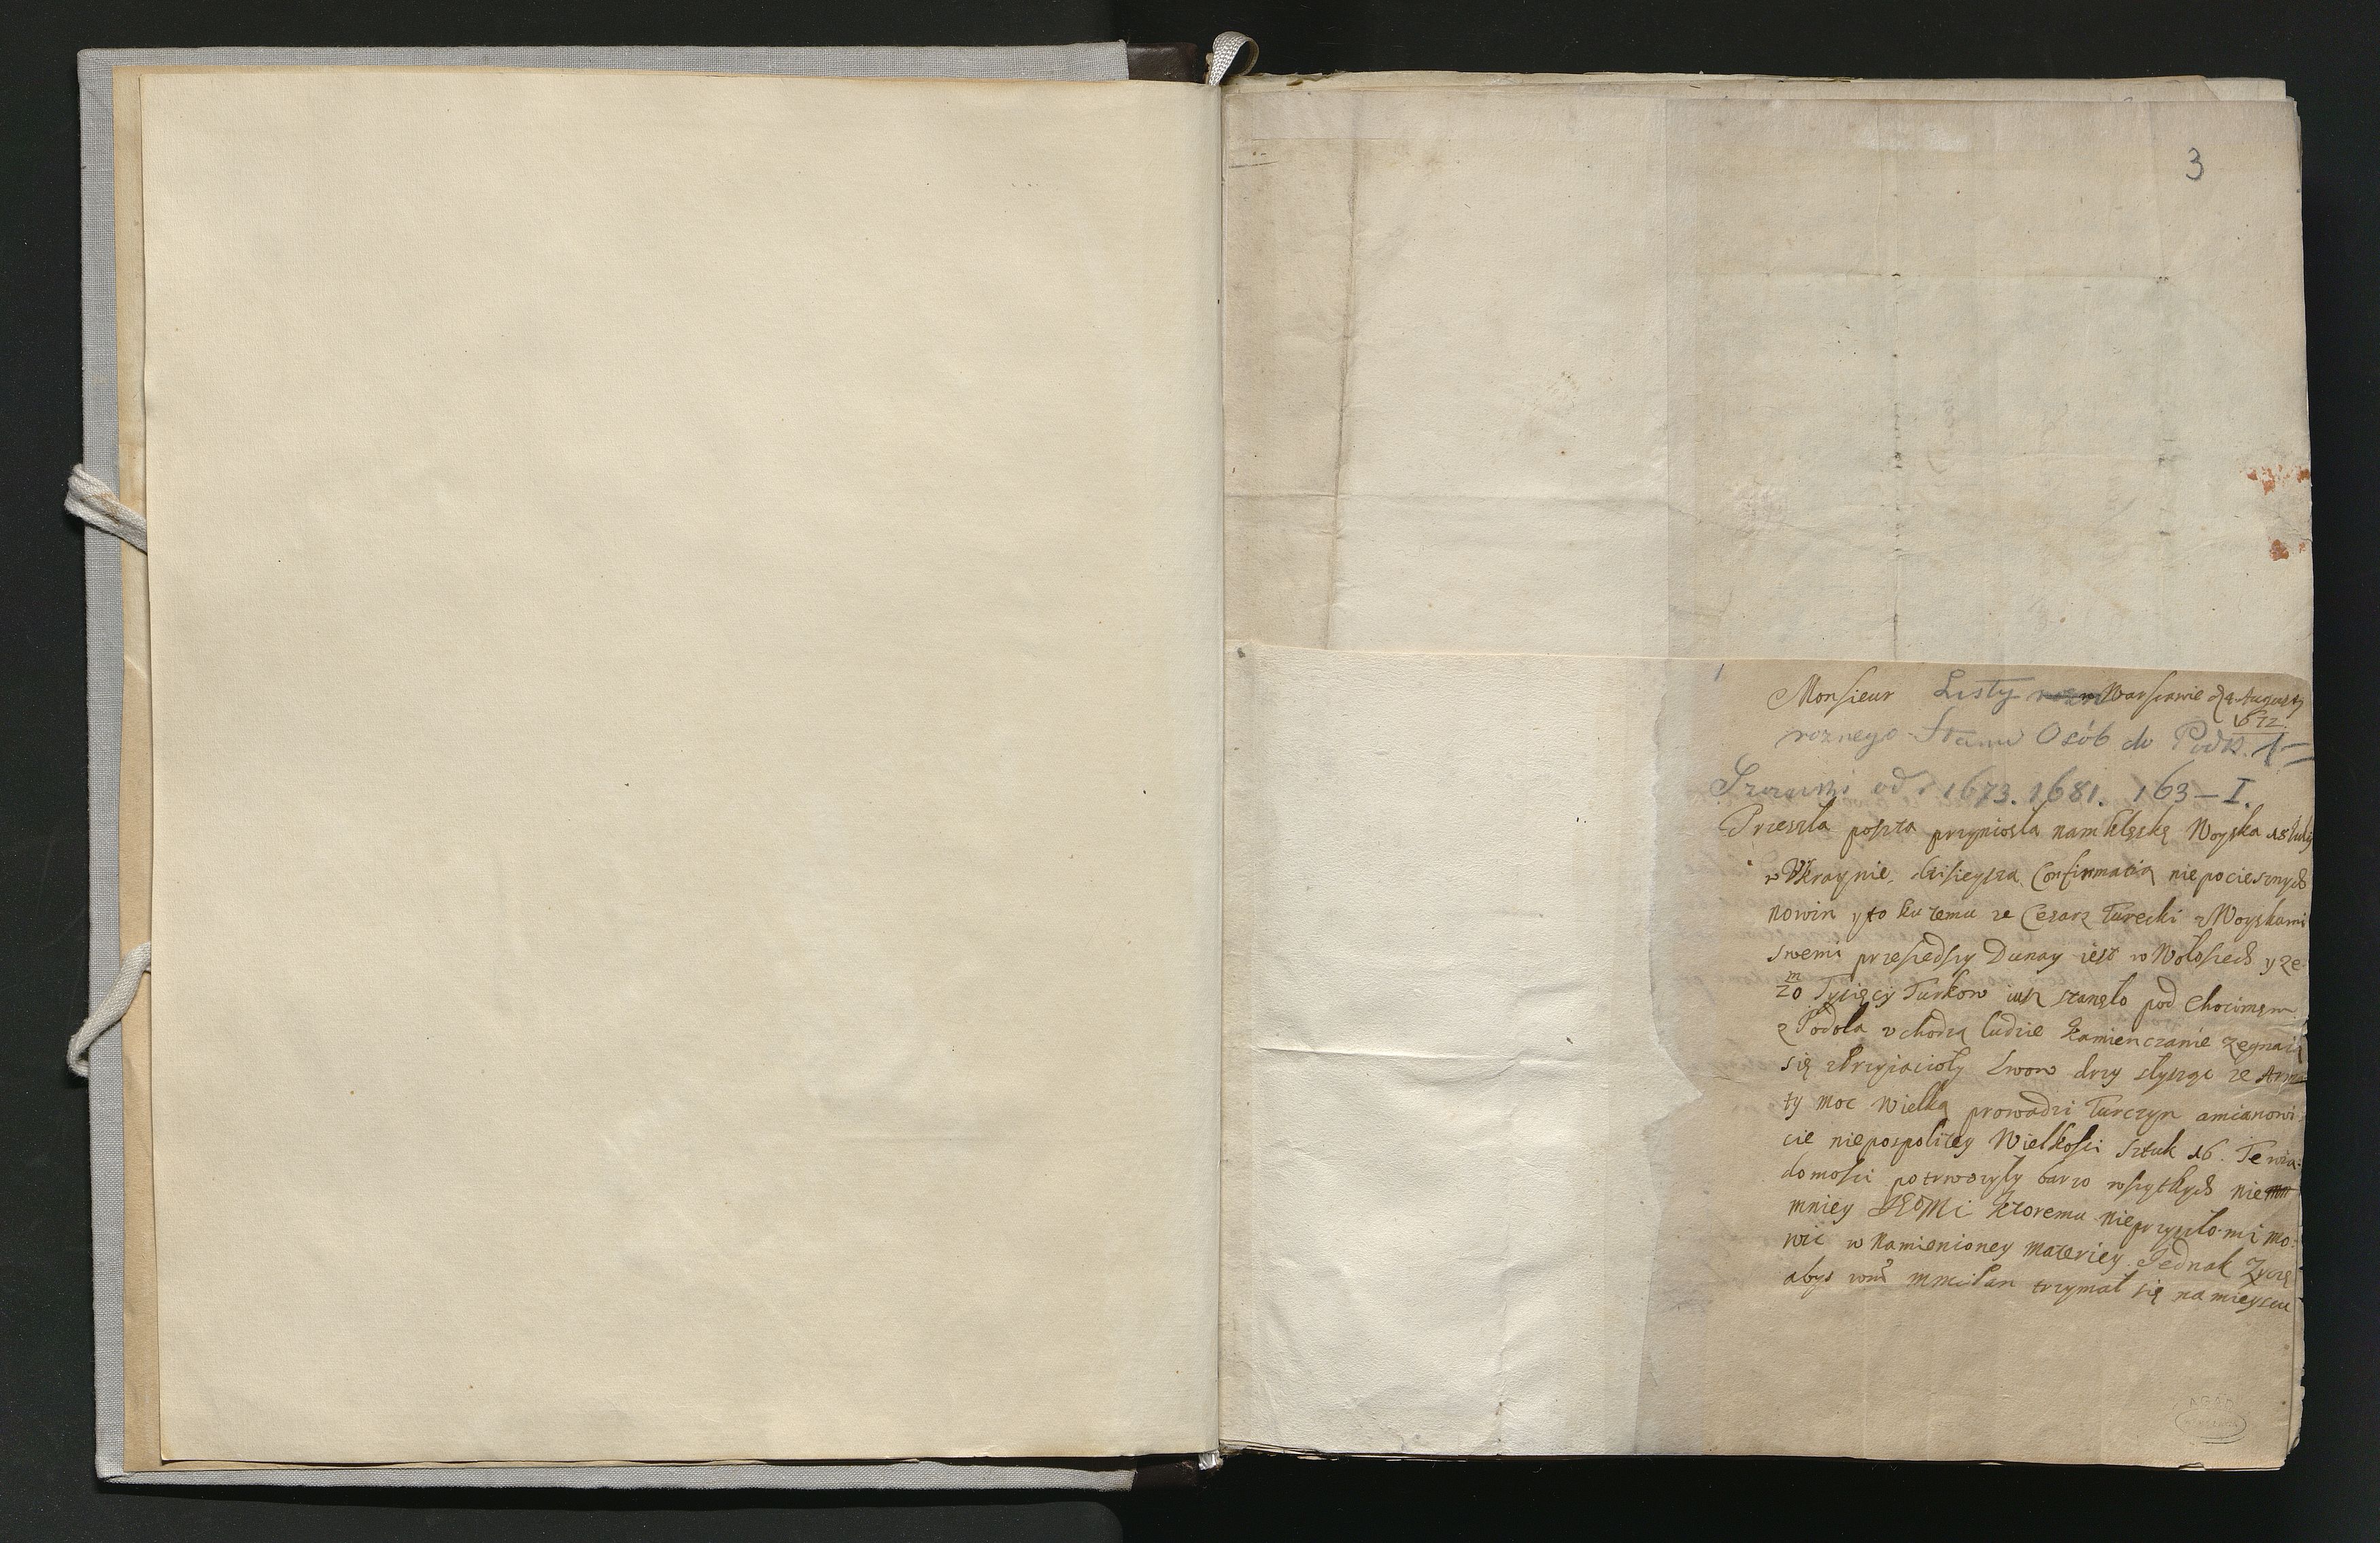 3
1
Monsieur Listy w Warszawie d 4 Augusty
1672
roznego Stanu Osób do Podk.
Szczuki od r 1673. 1681. 163–I.
Przeszła poszta przyniosła nam klęskę Woyska
w Vkraynie, dzisieysza Confirmatią niepociesznych
nowin y to ku temu ze Cesarz Turecki z Woyskami
swemi przeszedszy Dunay iest w Wołoszech y ze
m
20 Tysięcy Turkow iusz stanęło pod Chocimęm
z Podola vchodzą ludzie Kamienczanie zegnaią
się z Przyiacioły Lwow drzy słysząc ze Arma
ty moc wielką prowadzi Turczyn amianowi
cie niepospolitey Wielkosci Sztuk 16. Te wia-
domosci potrwozyły barzo wszytkych nie
mniey JEoMCi ktoremu nieprzyszło mi mo-
wic w namienioney materiey. Jednak zyczę
abys wm mmcipan trzymał się na mieyscu
AGAD